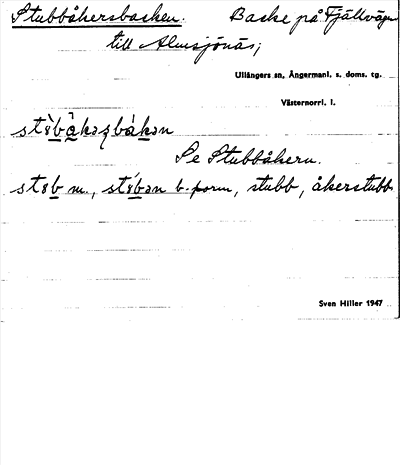 Stubbåkersbacken. Backe på Fjällvägen
till Almsjönäs;
Ullångers sn, Ångermanl. s. doms. tg.
Västernorrl. l.
Se Stubbåkern.
b. form, stubb, åkerstubb
Sven Hiller 1947